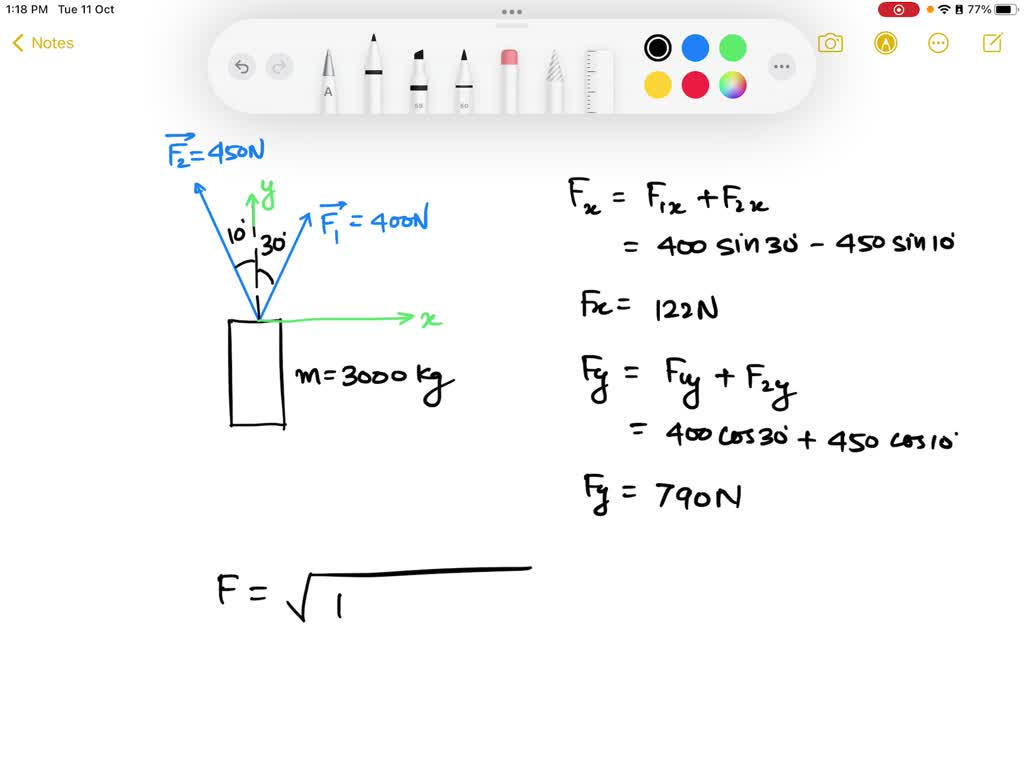 1:18 PM Tue 11 Oct
77%
Notes
A
50
50
F₂ = 450N
y
10°
30°
F₁ = 400N
x
m = 3000 kg
Fx = F1x + F2x
= 400 sin30° - 450 sin10°
Fx = 122N
Fy = F1y + F2y
= 400 cos30° + 450 cos10°
Fy = 790N
F = √1